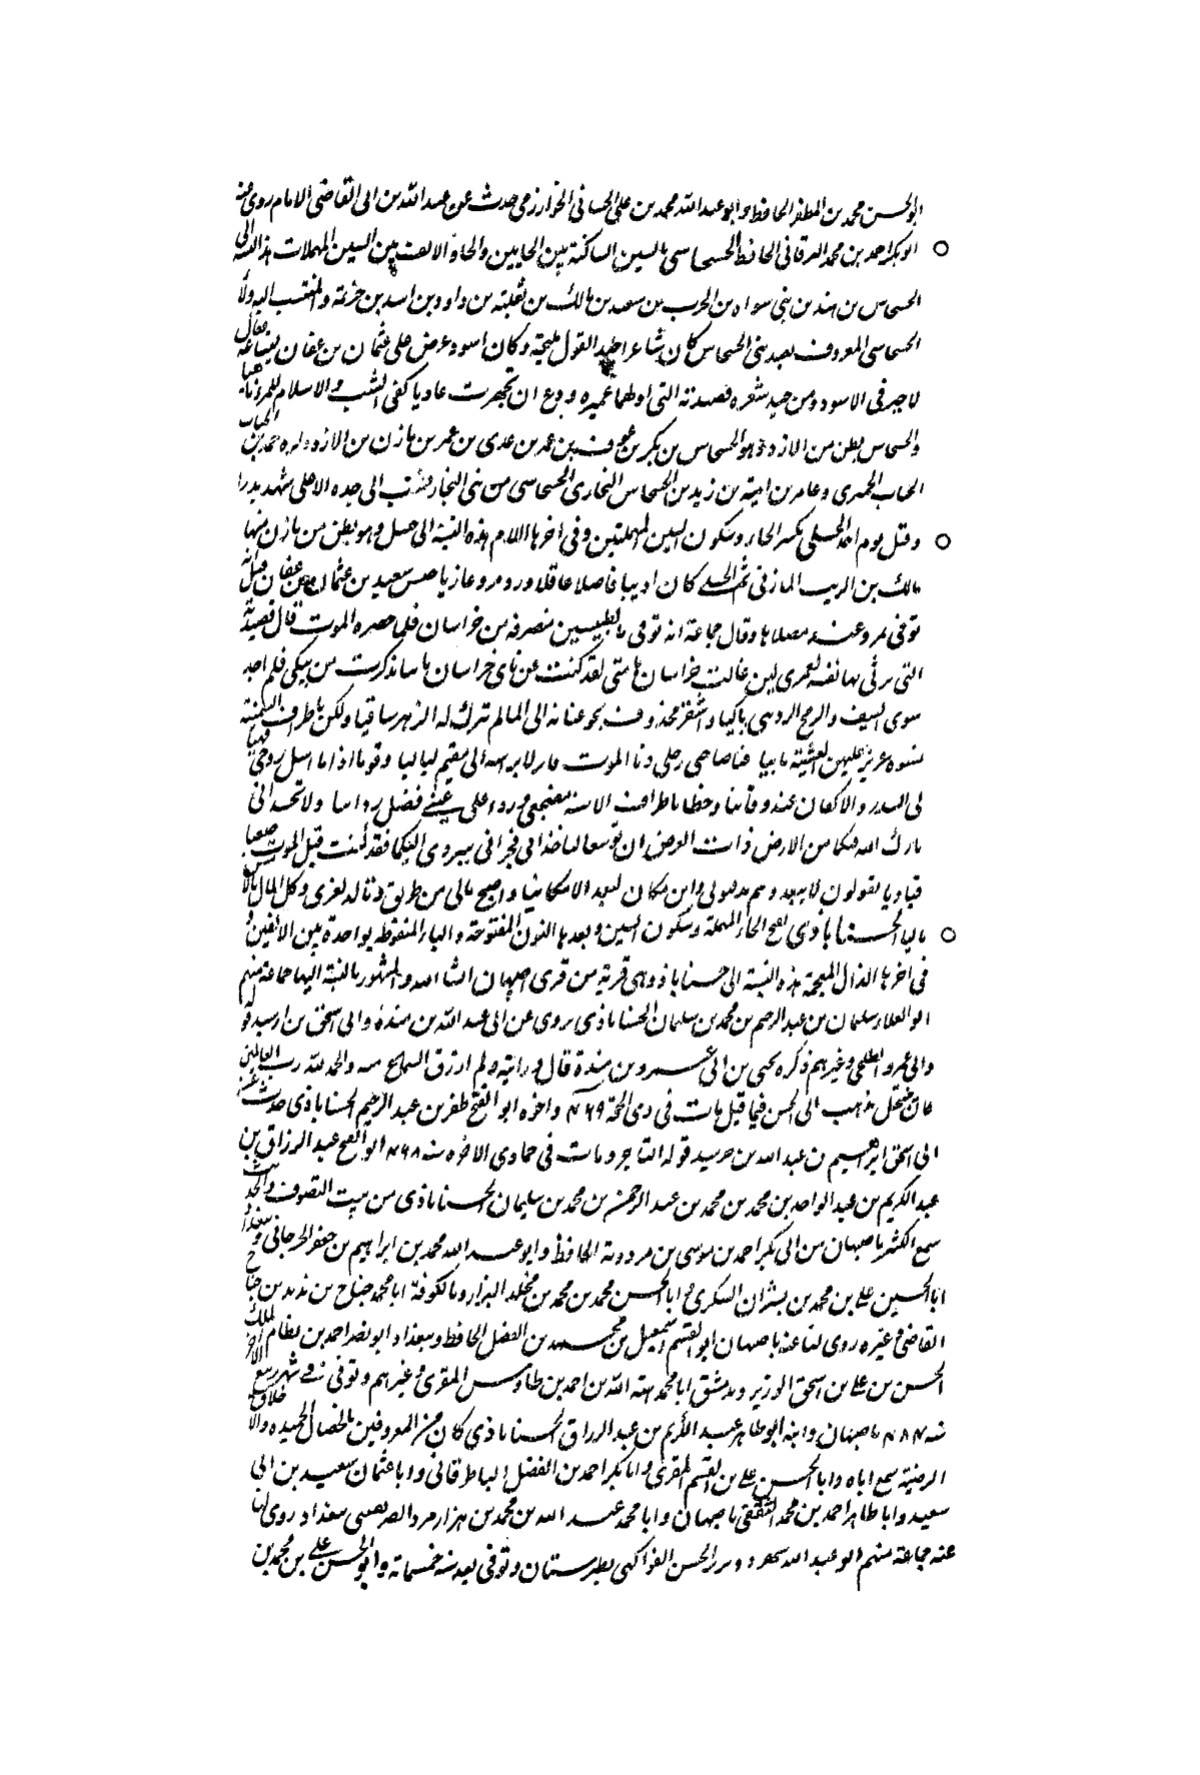 ابو الحسن محمد بن المظفر الحافظ وابو عبد الله محمد بن علي الحساني الخوارزمي حدث عن عبد الله بن ابي القاضي الامام روى عنه
ابو بكر احمد بن محمد البرقاني الحافظ الحسحاسي بالسين الساكنة بين الحايين والحاء والالف بين السين المهملات هذه النسبة الى
الحسحاس بن هند بن بني سواه بن الحرب بن سعد بن مالك بن ثعلبة بن داود بن اسد بن خزيمة والمنتسب اليه ولاء
الحسحاسي المعروف بعبد بني الحسحاس كان شاعرا جيد القول مليحة وكان اسود عرض على عثمان بن عفان ليبتاعه فقال
لا خير في الاسود ومن جيد شعره قصيدته التي اولها عميره ودع ان تجهزت عاديا كفى الشيب والاسلام للمرء ناهيا
والحسحاس بطن من الازد وهو الحسحاس بن بكر بن عوف بن عمر بن عدي بن عمر بن مازن بن الازد
وعامر بن امية بن زيد بن الحسحاس النجاري الحسحاسي من بني النجار نسب الى جده الاعلى شهد بدرا
وقتل يوم احد الحسلي بكسر الحاء وسكون السين المهملتين وفي اخرها اللام هذه النسبة الى حسل وهو بطن من مازن منها
مالك بن الريب المازني ثم الحسلي كان اديبا فاضلا عاقلا ورد مرو غازيا سعيد بن عثمان بن عفان فقيل انه
توفي بمرو وعند مصلاها وقال جماعة انه توفي بالطبسين منصرفه من خراسان فلما حضره الموت قال قصيدته
التي يرثي بها نفسه لعمري لين غالت خراسان هامتي لقد كنت عن بابي خراسان نائيا تذكرت من يبكي فلم اجد
سوى السيف والرمح الرديني باكيا واشقر محذوف يجر عنانه الى الماء لم يترك له الدهر ساقيا ولكن باطراف السمينة
نسوه عزيز عليهن العشية ما بيا فيا صاحبي رحلي دنا الموت فانزلا برابية اني مقيم لياليا وقوما اذا ما استل روحي فهيا
لي السدر والاكفان عند وفاتيا وخطا باطراف الاسنة مضجعي وردا على عيني فضل ردائيا ولا تحسداني
بارك الله فيكما من الارض ذات العرض ان توسعا ليا خذاني فجراني ببردي اليكما فقد كنت قبل الموت صعبا
قياديا يقولون لا يبعد وهم يدفنوني واين مكان البعد الا مكانيا واصبح مالي من طريق وتالد لغيري وكل المال بالامس
ماليا الحسناباذي بفتح الحاء المهملة وسكون السين وبعدها النون المفتوحة والباء المنقوطة بواحدة بين الالفين و
في اخرها الذال المعجمة هذه النسبة الى حسناباذ وهي قرية من قرى اصبهان والمشهور بالنسبة اليها جماعة منهم
ابو العلاء سليمان بن عبد الرحيم بن محمد بن سليمان الحسناباذي يروي عن ابي عبد الله بن منده وابي اسحق بن خرشيد قوله
وابي عمر والطلحي وغيرهم ذكره يحيى بن ابي عمرو بن مندة قال ورايته ولم ارزق السماع منه والحمد لله رب العالمين
كان ينتحل مذهب ابي الحسن فيما قيل مات في ذي الحجة ٤٦٩ واخوه ابو الفتح ظفر بن عبد الرحيم الحسناباذي حدث عن
ابي اسحق ابراهيم بن عبد الله بن خرشيد قوله التاجر ومات في جمادى الاخره سنه ٤٦٨ ابو الفتح عبد الرزاق بن
عبد الكريم بن عبد الواحد بن محمد بن محمد بن عبد الرحمن بن محمد بن سليمان الحسناباذي من بيت التصوف والحديث
سمع الكثير باصبهان من ابي بكر احمد بن موسى بن مردويه الحافظ وابو عبد الله محمد بن ابراهيم بن جعفر الجرجاني وببغداد
ابا الحسين علي بن محمد بن بشران السكري وابا الحسن محمد بن محمد بن مخلد البزار وبالكوفة ابا محمد جناح بن نذير بن جناح
القاضي وغيره روى لنا عنه باصبهان ابو القسم اسمعيل بن محمد بن الفضل الحافظ وببغداد ابو نصر احمد بن نظام الملك
الحسن بن علي بن اسحق الوزير وبدمشق ابا محمد هبة الله بن احمد بن طاوس المقرئ وغيرهم وتوفي في شهر ربيع الاخر
سنه ٤٨٤ باصبهان وابنه ابو طاهر عبد الكريم بن عبد الرزاق الحسناباذي كان من المعروفين بالخصال الحميده والاخلاق
الرضية سمع اباه وابا الحسن علي بن القسم المقرئ وابا بكر احمد بن الفضل الباطرقاني وابا عثمان سعيد بن ابي
سعيد وابا طاهر احمد بن محمد الثقفي باصبهان وابا محمد عبد الله بن محمد بن هزارمرد الصريفيني ببغداد روى لنا
عنه جماعة منهم ابو عبد الله الحسن الفواكهي بطبرستان وتوفي بعد سنه خمسمائة وابو الحسن علي بن محمد بن